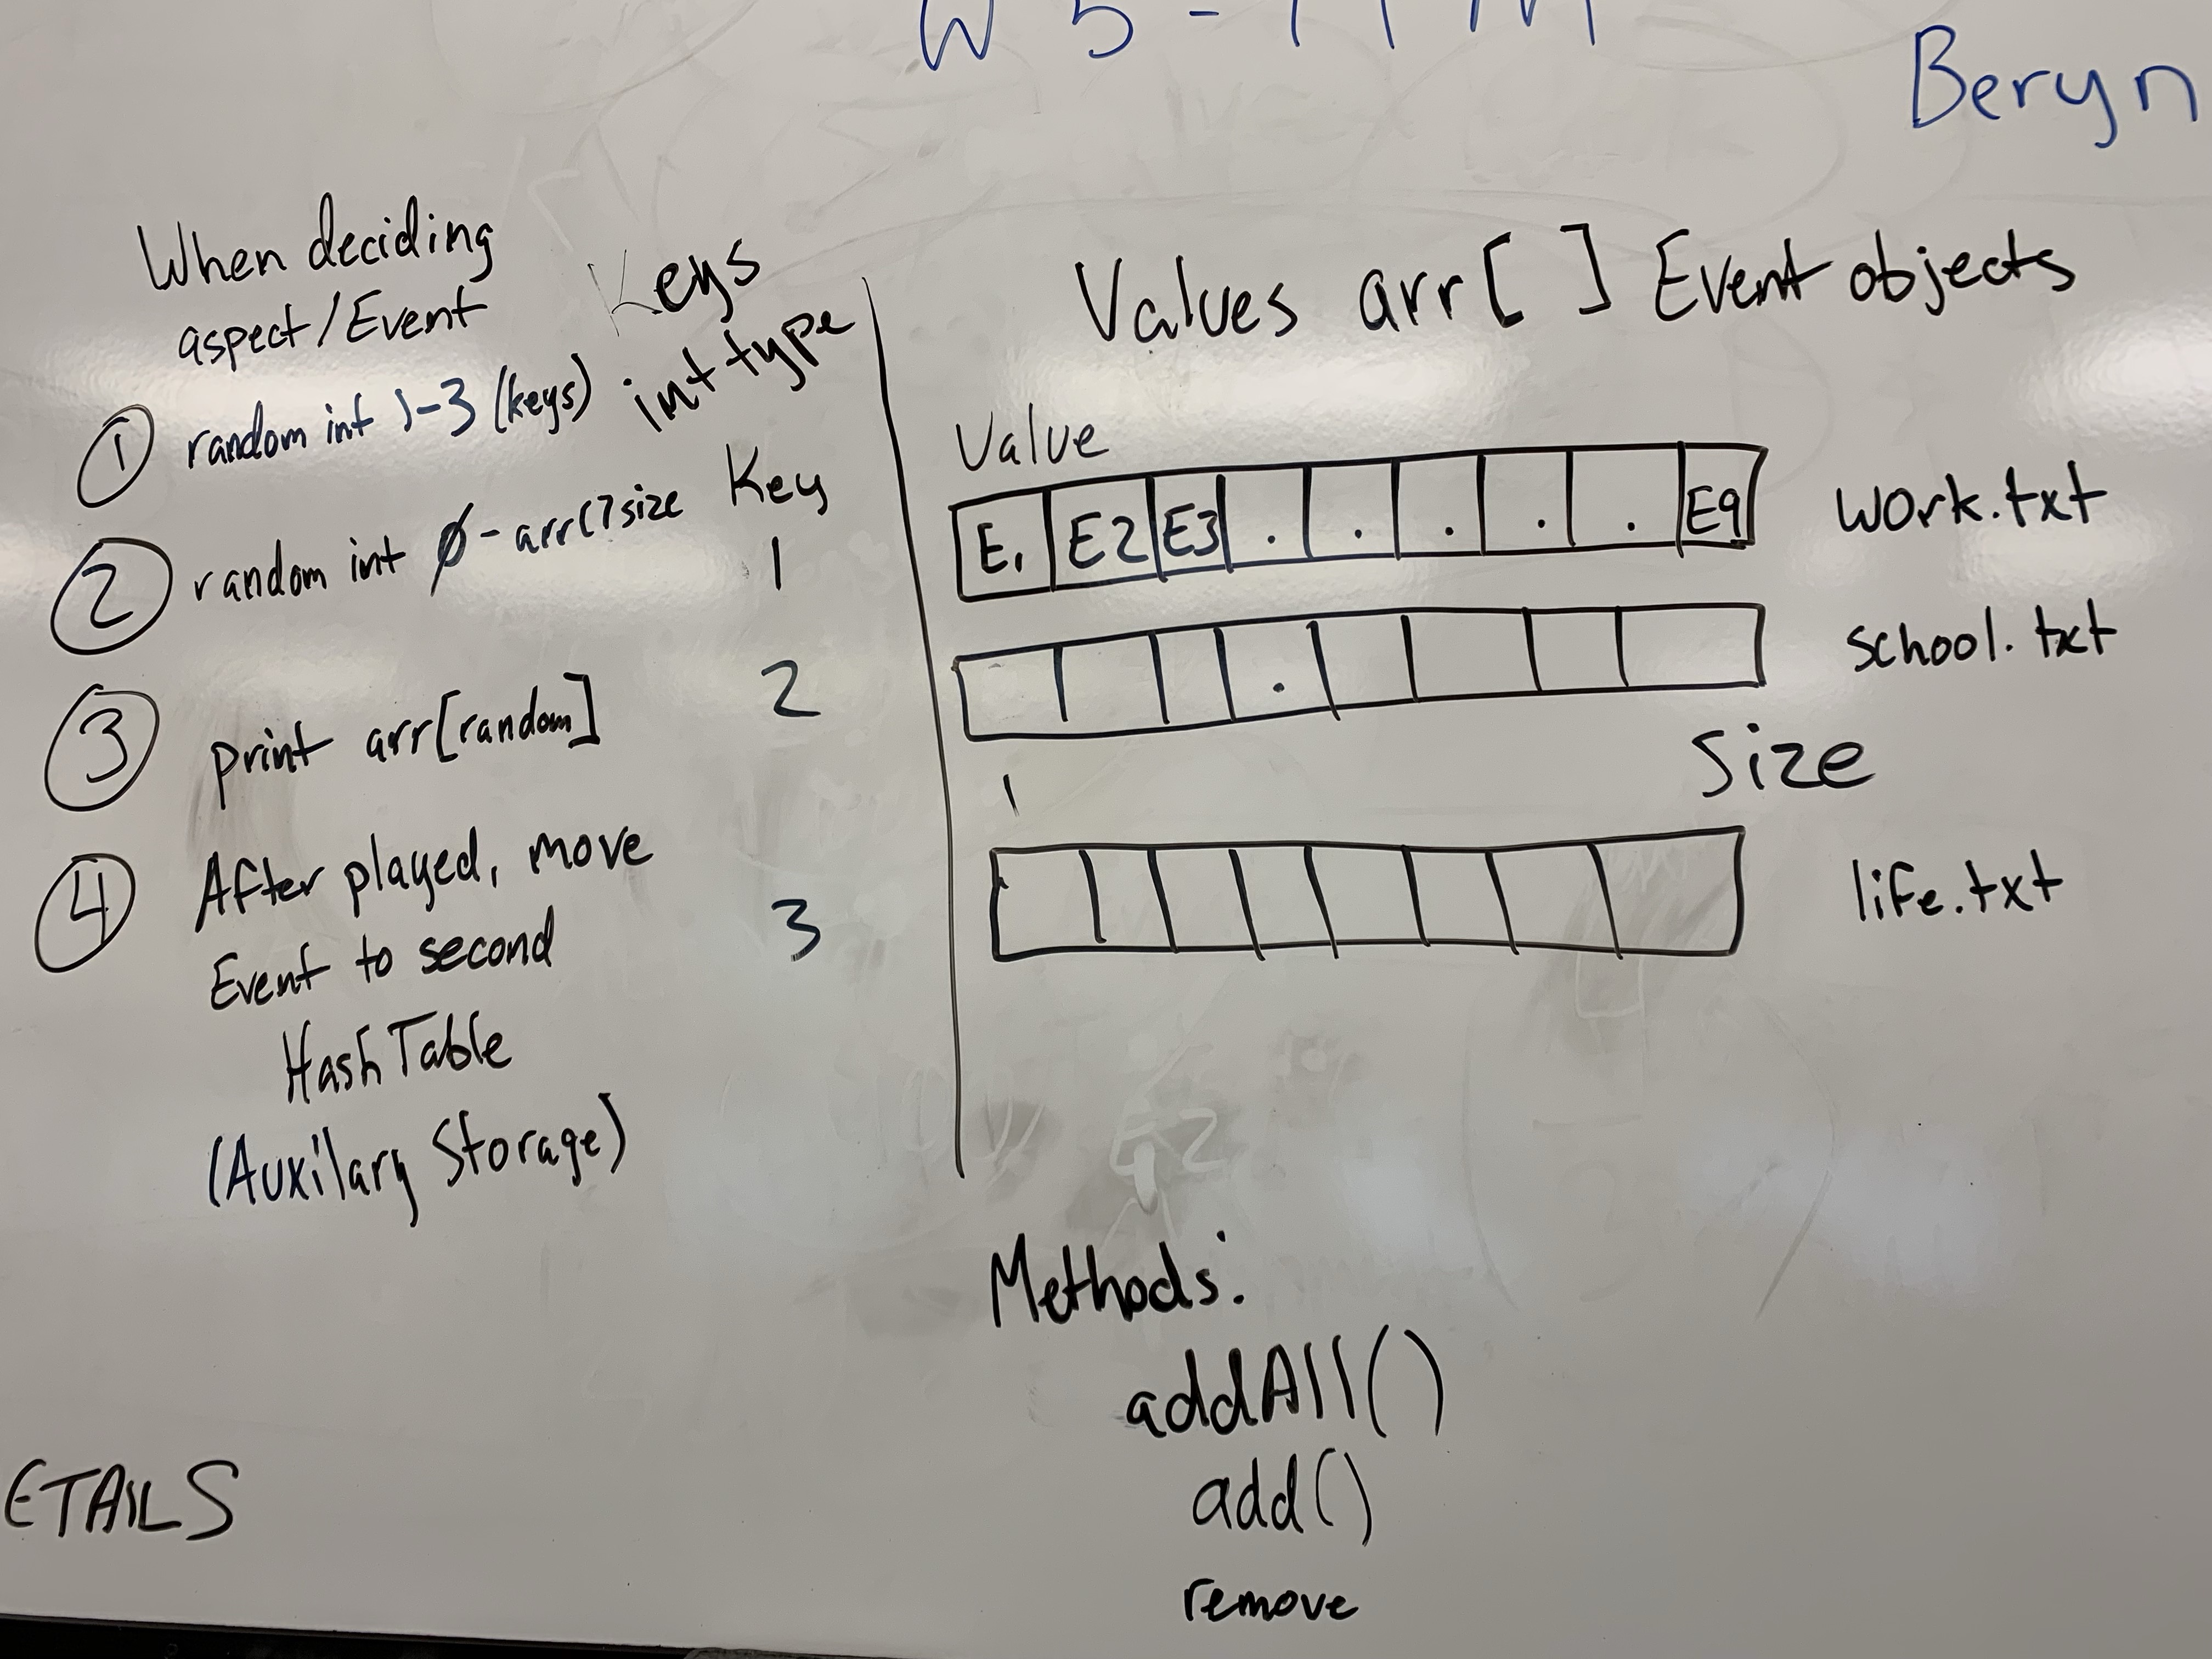 Beryn
When deciding
aspect/Event
① random int 1-3 (keys)
② random int Ø - arr[] size
③ print arr[random]
④ After played, move
Event to second
HashTable
(Auxilary Storage)
ETAILS
Keys
int type
Key
1
2
3
Values arr[ ] Event objects
Value
E1 E2 E3 . . . . . E9 work.txt
. school.txt
1 Size
life.txt
Methods:
addAll()
add()
remove